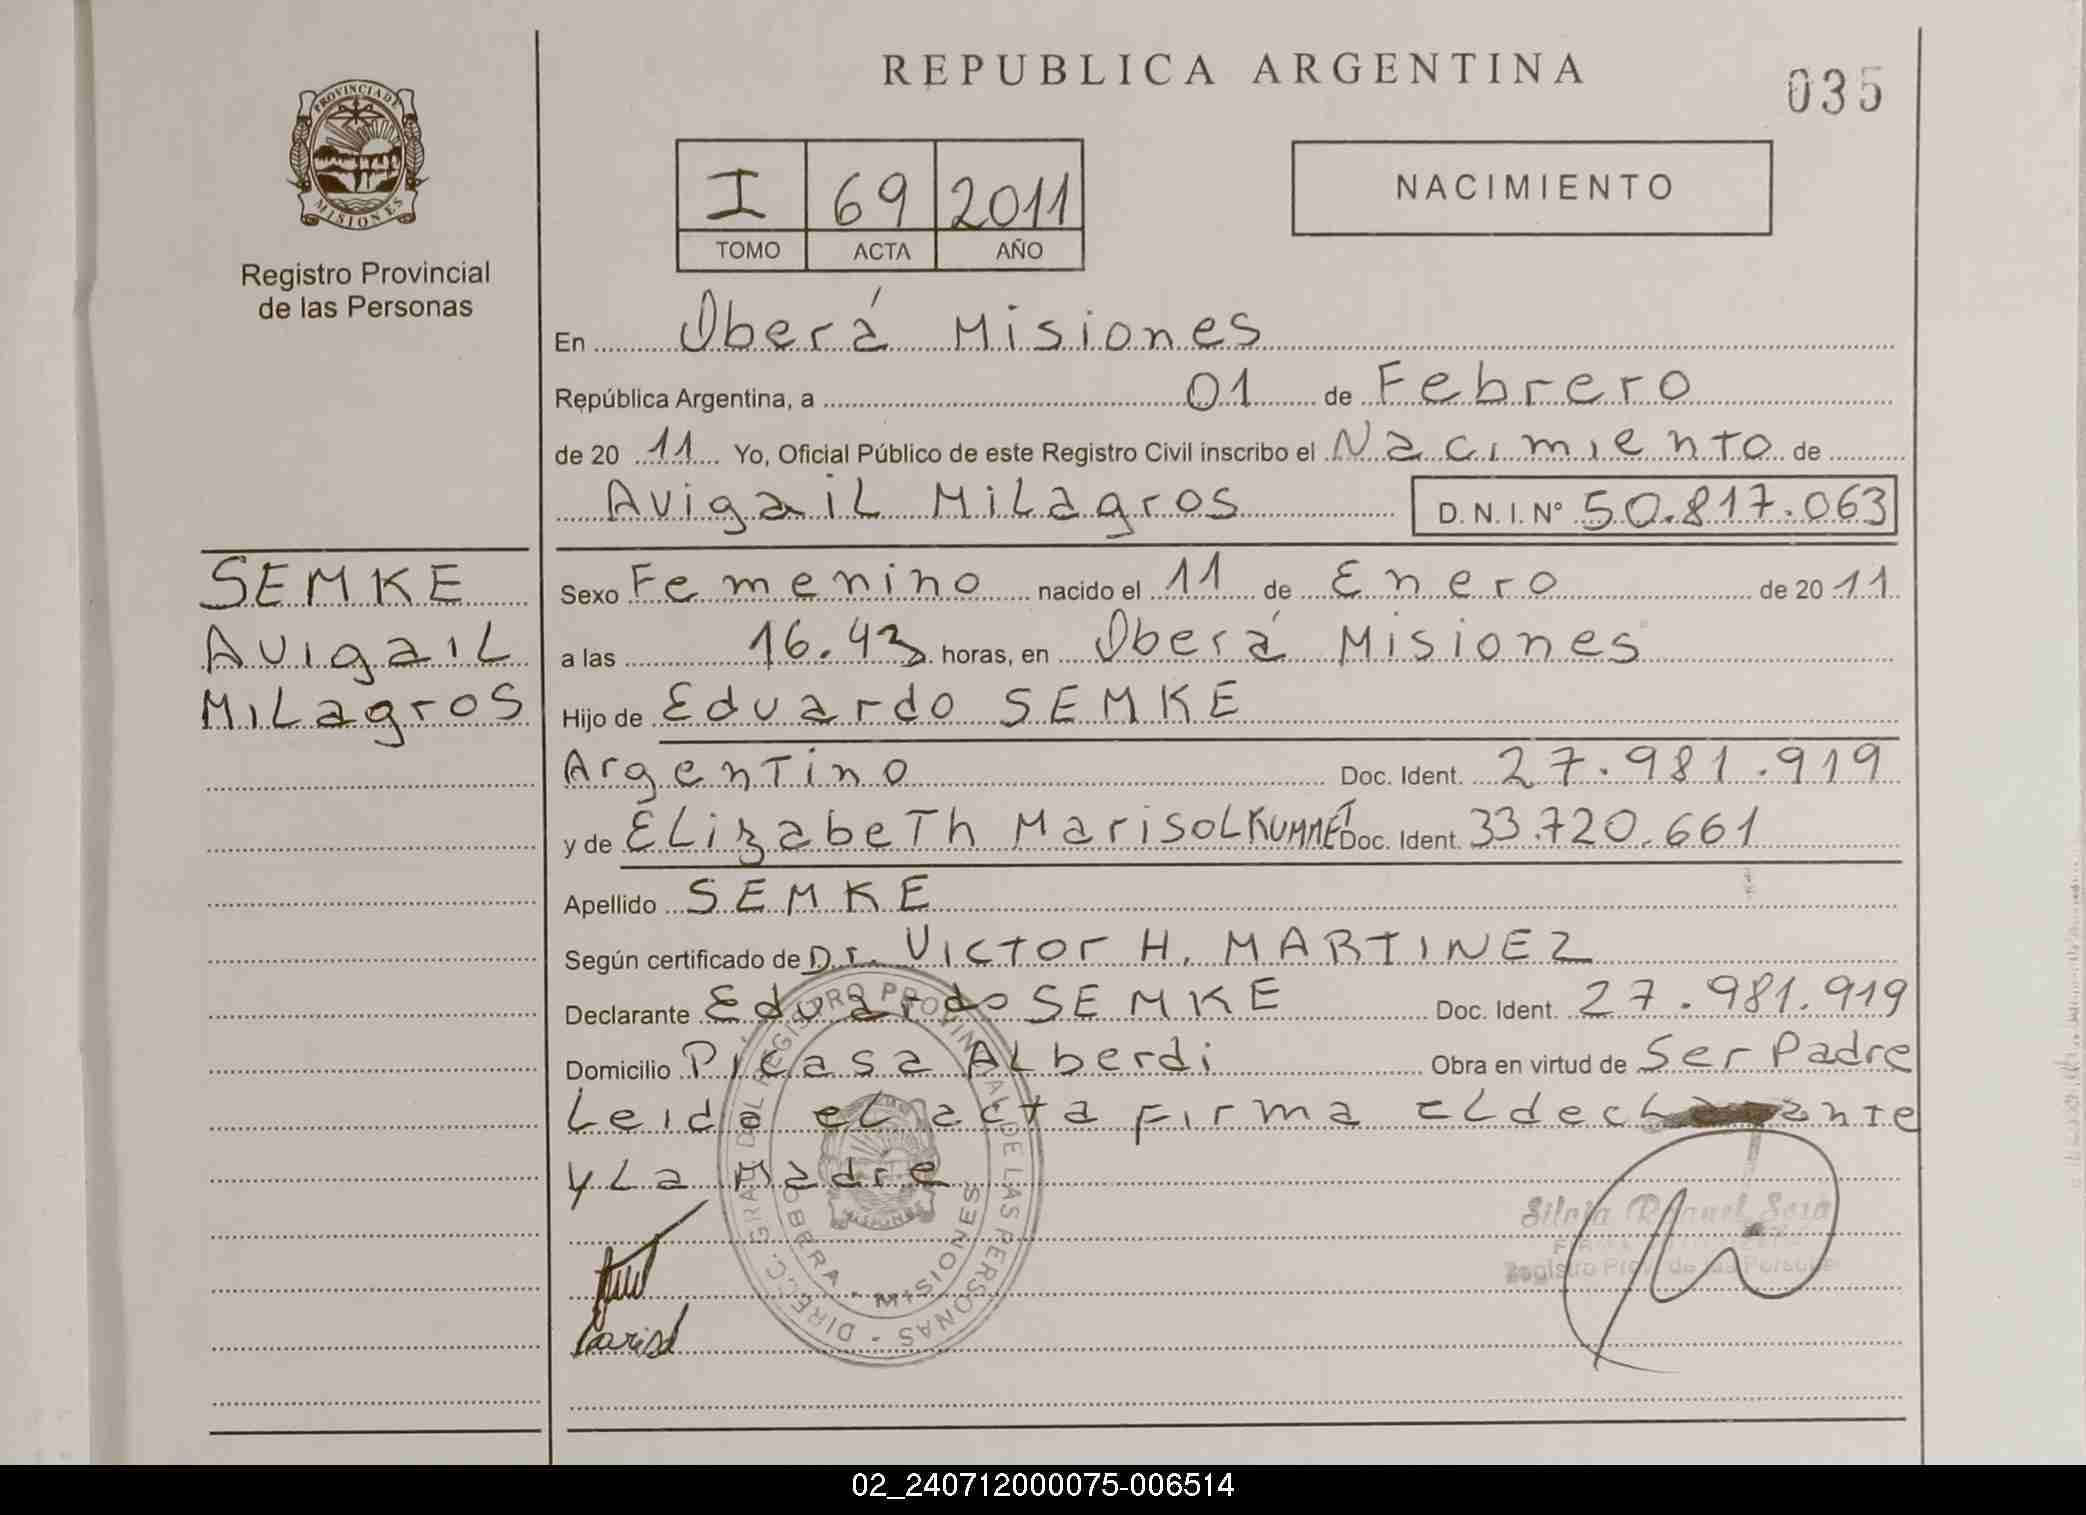 REPUBLICA ARGENTINA
035
PROVINCIA DE
MISIONES
Registro Provincial
de las Personas
I 69 2011
TOMO ACTA AÑO
NACIMIENTO
En Oberá Misiones
República Argentina, a 01 de Febrero
de 20 11 Yo, Oficial Público de este Registro Civil inscribo el Nacimiento de
Avigail Milagros D.N.I. N° 50.817.063
SEMKE
Avigail
Milagros
Sexo Femenino nacido el 11 de Enero de 20 11
a las 16.43 horas, en Oberá Misiones
Hijo de Eduardo SEMKE
Argentino Doc. Ident. 27.981.919
y de Elizabeth Marisol Doc. Ident. 33.720.661
Apellido SEMKE
Según certificado de Dr. Victor H. MARTINEZ
Declarante Eduardo SEMKE Doc. Ident. 27.981.919
Domicilio Picasa Alberdi Obra en virtud de Ser Padre
Leida el acta firma el declarante
y La Madre
DIREC. GRAL. DEL REGISTRO PROVINCIAL DE LAS PERSONAS
OBERA - MISIONES
Registro Prov. de las Personas
02_240712000075-006514